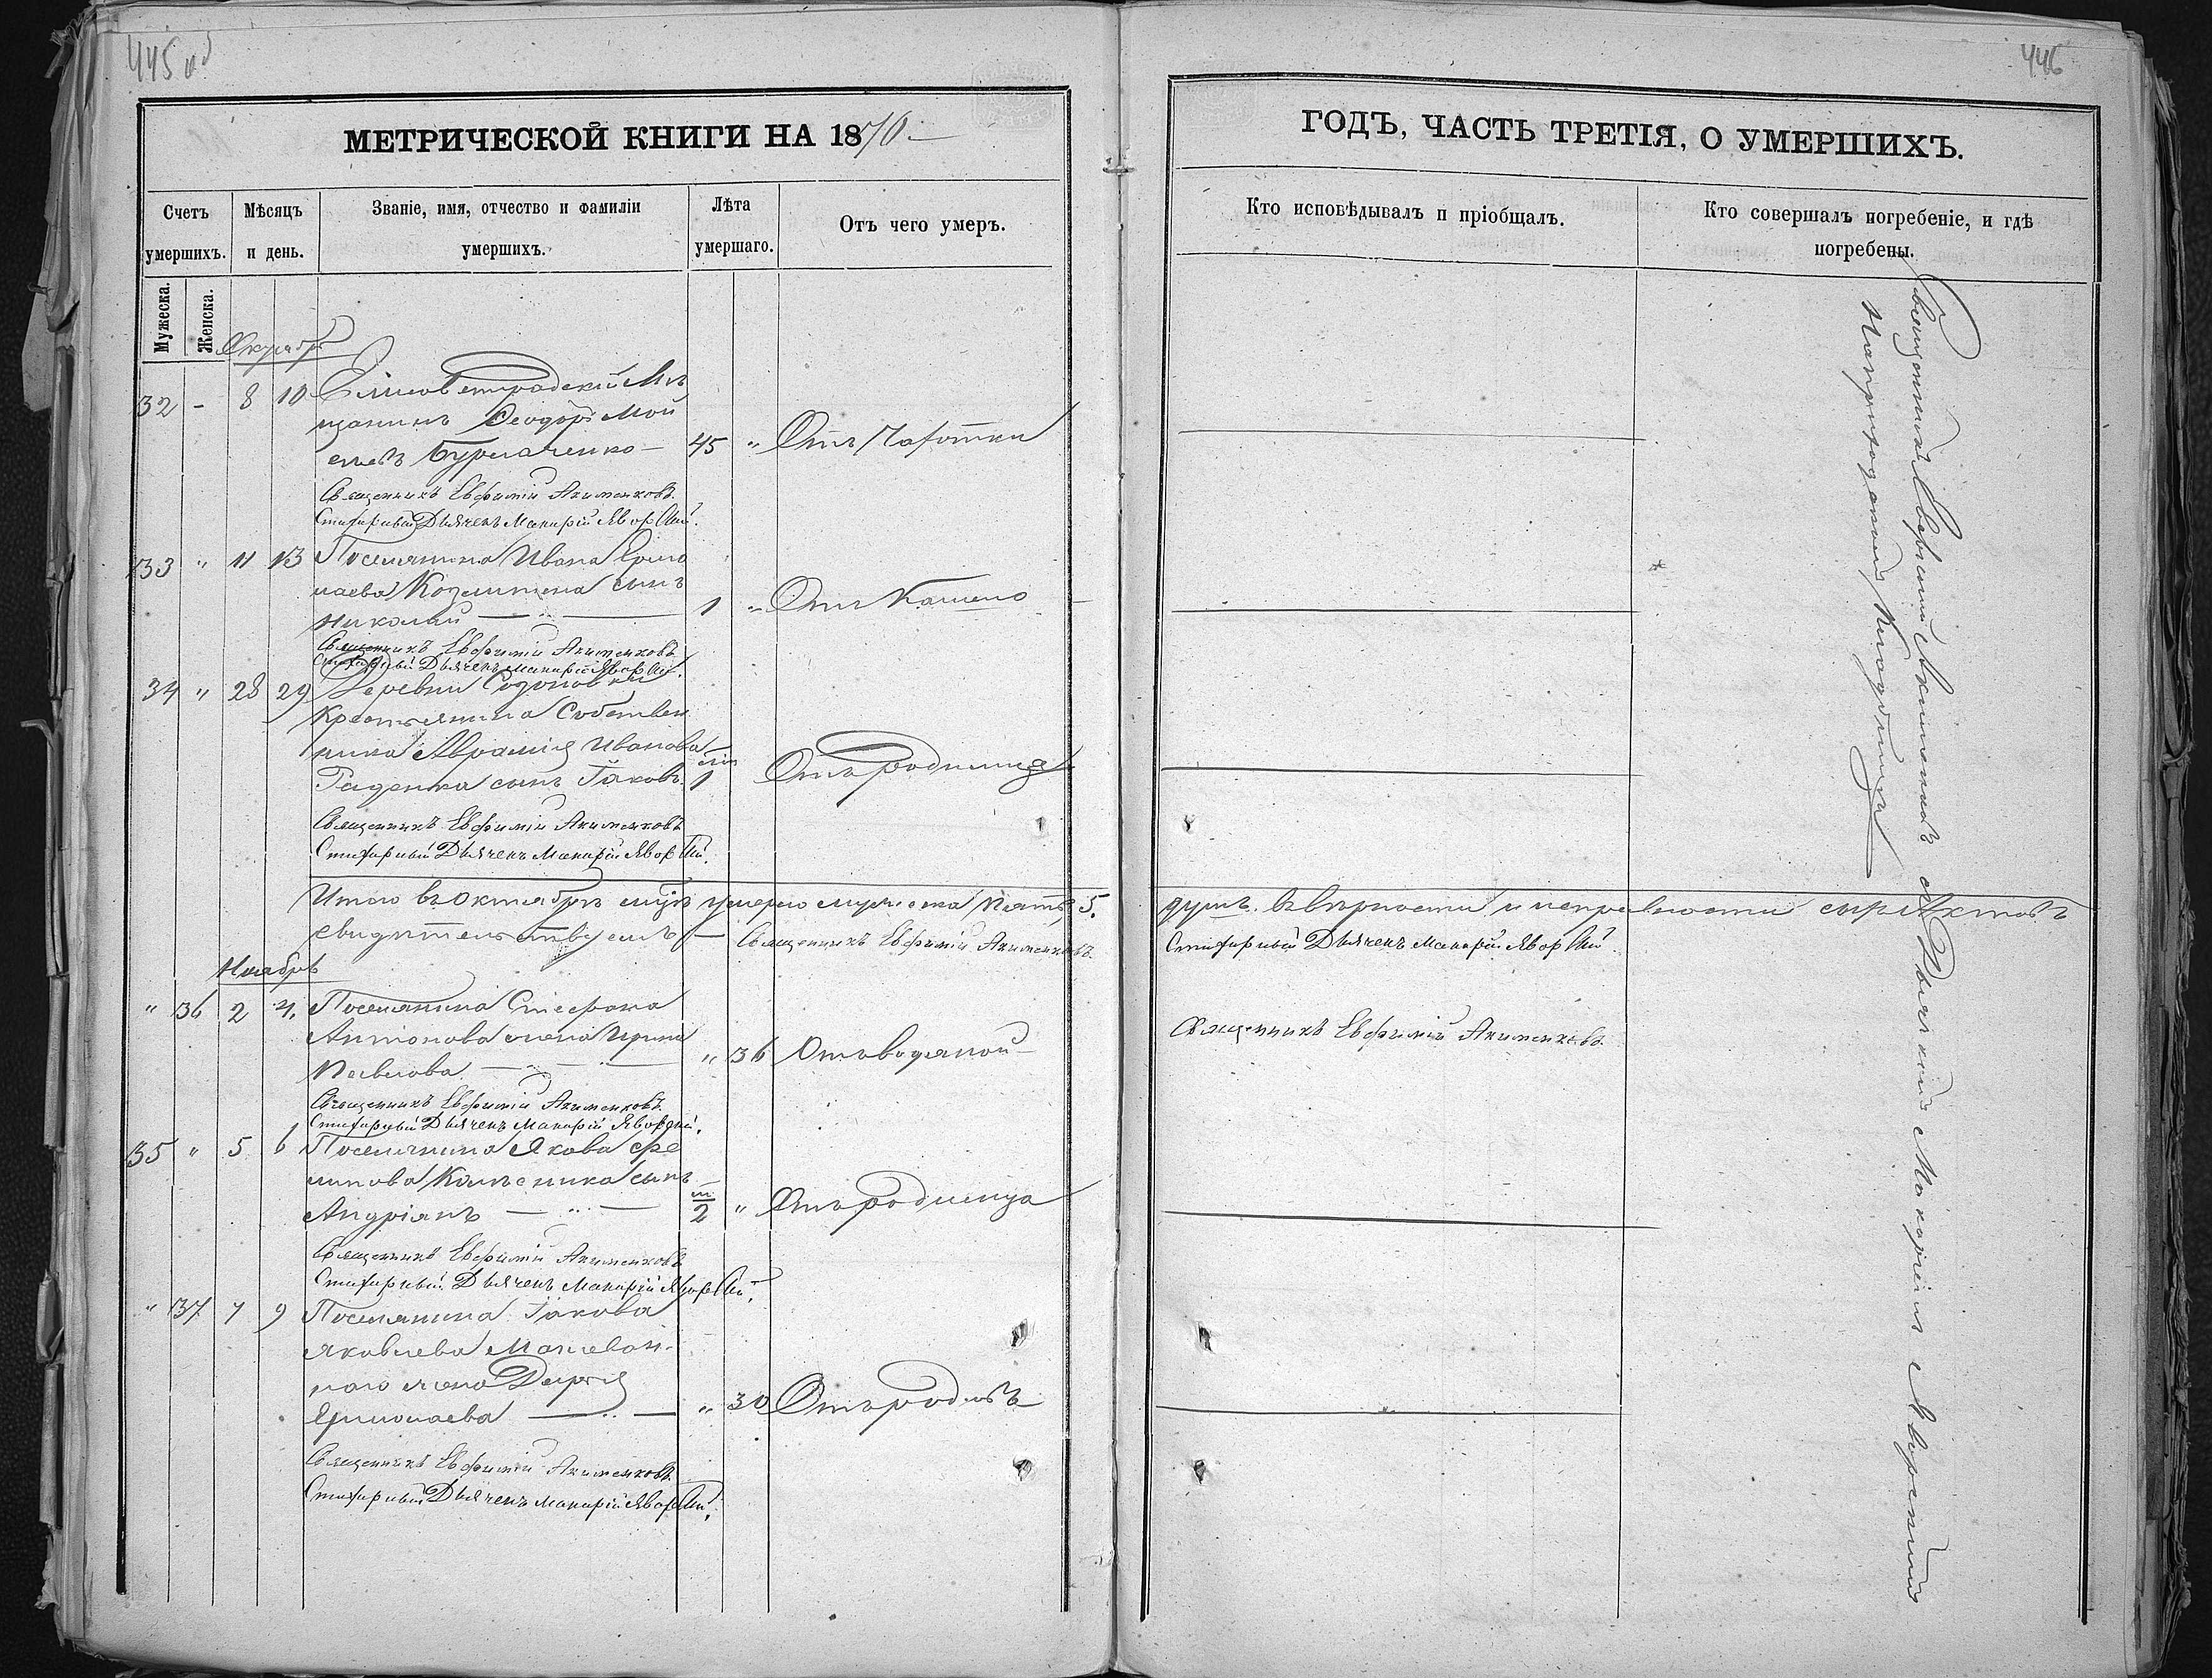 445 об
446
МЕТРИЧЕСКОЙ КНИГИ НА 1870
ГОДЪ, ЧАСТЬ ТРЕТІЯ, О УМЕРШИХЪ.
Счетъ умершихъ.
Мѣсяцъ и день.
Званіе, имя, отчество и фамиліи умершихъ.
Лѣта умершаго.
Отъ чего умеръ.
Кто исповѣдывалъ и пріобщалъ.
Кто совершалъ погребеніе, и гдѣ погребены.
Мужеска.
Женска.
Октябрь
32 - 8 10 Елисоветградскій Мѣ
щанинъ Ѳеодоръ Мой
сеевъ Бурлаченко - 45 " Отъ Чахотки
Священникъ Евфимій Акименковъ.
Стихарный Дьячекъ Макарій Яворскій.
33 " 11 13 Поселянина Ивана Ермо
лаева сынъ
Николай 1 " Отъ Кашлю
Священникъ Евфимій Акименковъ
Стихарный Дьячекъ Макарій Яворскій.
34 " 28 29 Деревни
Крестьянина Собствен
ника Аврамія Иванова
сынъ Іаковъ 1 Отъ родимца
Священникъ Евфимій Акименковъ
Стихарный Дьячекъ Макарій Яворскій.
Итого въ Октябрѣ умерло мужеска пять, 5. душъ. Въ вѣрности и исправности сихъ Актовъ
свидѣтельствуемъ - Священникъ Евфимій Акименковъ. Стихарный Дьячекъ Макарій Яворскій.
Ноябрь
" 36 2 4. Поселянина Стефана
Антонова жена Ирина
Павлова " 36 Отъ водяной Священникъ Евфимій Акименковъ.
Священникъ Евфимій Акименковъ.
Стихарный Дьячекъ Макарій Яворскій.
35 " 5 6 Поселянина Якова
сынъ
Андріянъ 2 " Отъ родимца
Священникъ Евфимій Акименковъ
Стихарный Дьячекъ Макарій Яворскій.
" 37 7 9 Поселянина Іакова
Яковлева
жена Дарія
Ермолаева " 30 Отъ родовъ
Священникъ Евфимій Акименковъ.
Стихарный Дьячекъ Макарій Яворскій.
Священникъ Евфимій Акименковъ съ Дьячкомъ Макаріемъ Яворскимъ
На приходскомъ Кладбищѣ